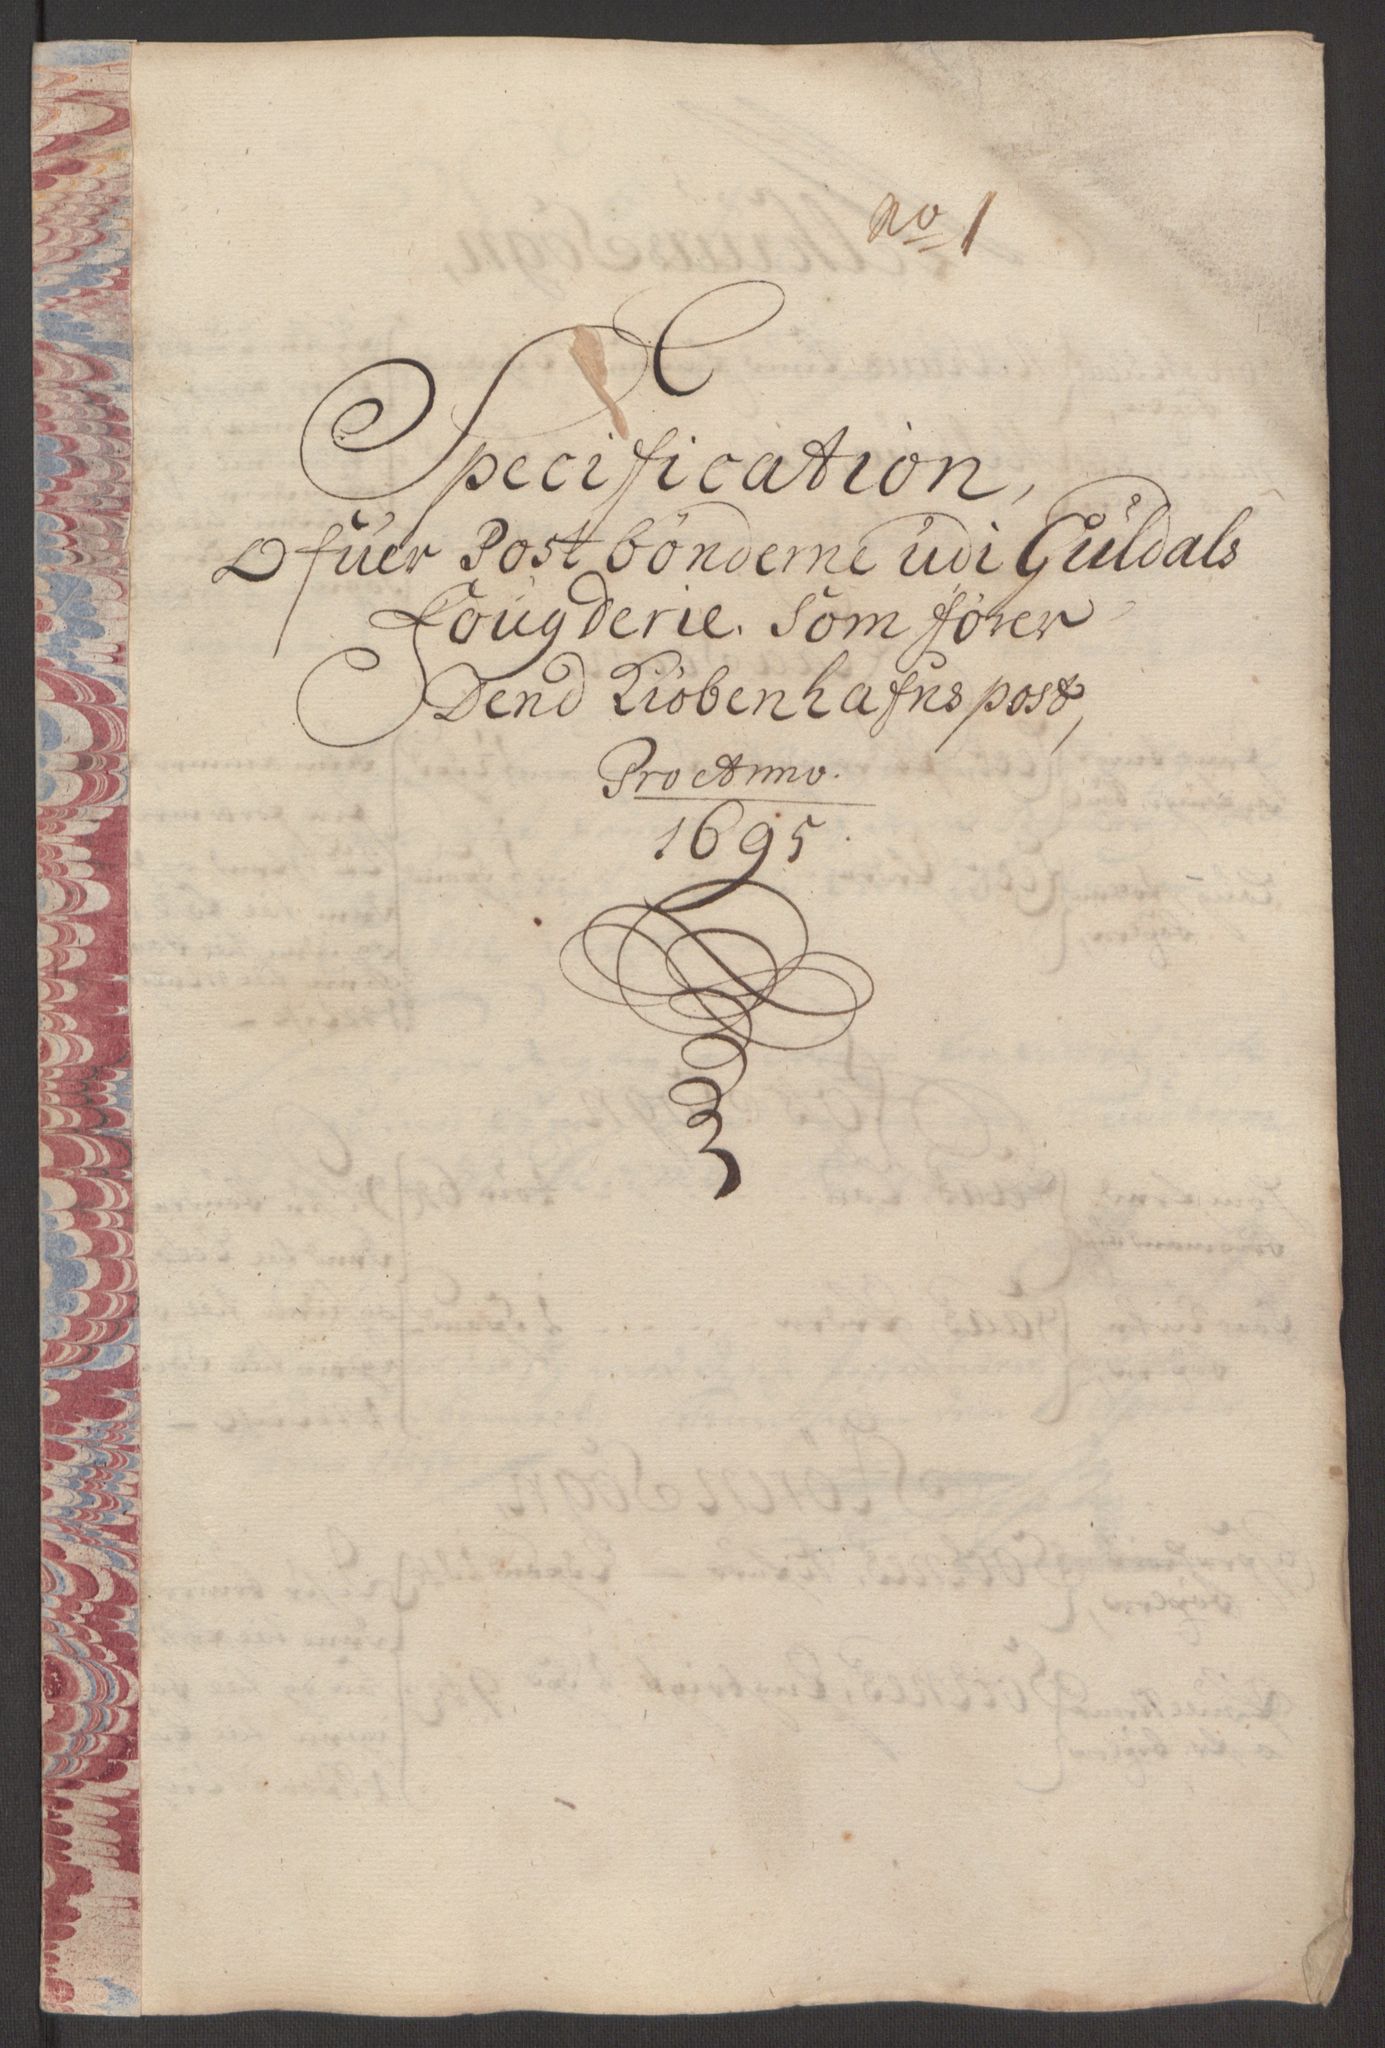 No 1
Specification,
Ofuer Post bönderne udi Guldals
Fougderie. Som förer
Dend Kiöbenhafns post,
Pro Anno.
1695.